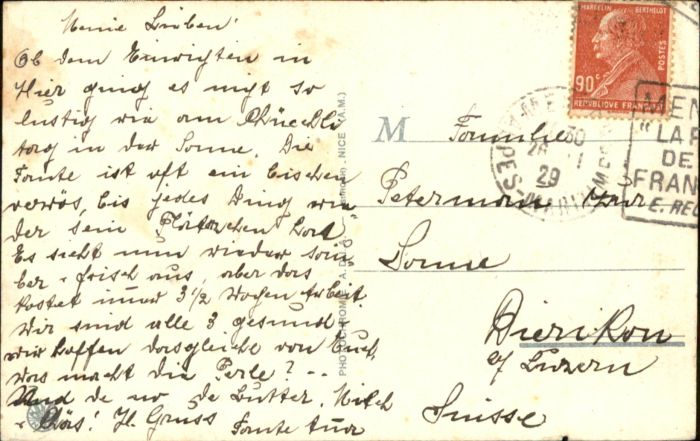 Meine Lieben!
Ob dem Einrichten in
Hier ging es nicht so
lustig wie am
in der Sonne. Die
Tante ist oft ein bischen
nervös, bis jedes Ding wie
der sein Plätzchen hat
Es sieht nun wieder sau
ber - frisch aus, aber das
kostet 3 1/2 Wochen Arbeit.
Wir sind alle 3 gesund
wir hoffen dasgleiche von Euch,
was macht die Perle? --
Und de no de Butter, Milch
- Chäs! Hl. Gruss
Tante
PHOTOCHROMIE
NICE (A.M.)
M Familie
Petermann zur
Sonne
Dierikon
b/ Luzern
Suisse
MARCELIN BERTHELOT
90c
POSTES
REPUBLIQUE FRANÇAISE
30
28 - 1
29
PES-MARITIMES
"LA
DE
FRAN